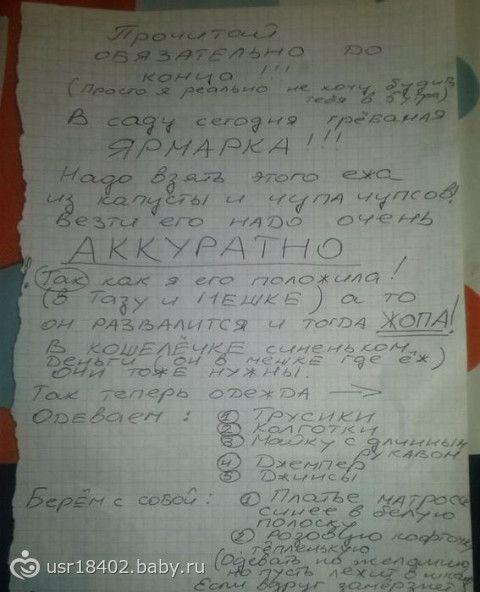 Прочитай
ОБЯЗАТЕЛЬНО ДО
конца !!!
(Просто я реально не хочу будить
тебя в 6 утра)
В саду сегодня грёбаная
ЯРМАРКА!!!
Надо взять этого ежа
из капусты и чупа чупсов!
Везти его НАДО очень
АККУРАТНО
Так как я его положила!
(В ТАЗУ И МЕШКЕ) а то
он РАЗВАЛИТСЯ и тогда ЖОПА!
В КОШЕЛЁЧКЕ СИНЕНЬКОМ
ДЕНЬГИ (ОН В МЕШКЕ ГДЕ ЁЖ)
ОНИ ТОЖЕ НУЖНЫ.
Так теперь одежда →
Одеваем: ① Трусики
② Колготки
③ Майку с длинным
рукавом
④ Джемпер
⑤ Джинсы
Берём с собой: ① Платье матроса
синее в белую
полоску
② Розовую кофточку
тёпленькую
(Одевать по желанию
но пусть лежит в шкаф
Если вдруг замёрзнет
usr18402.baby.ru